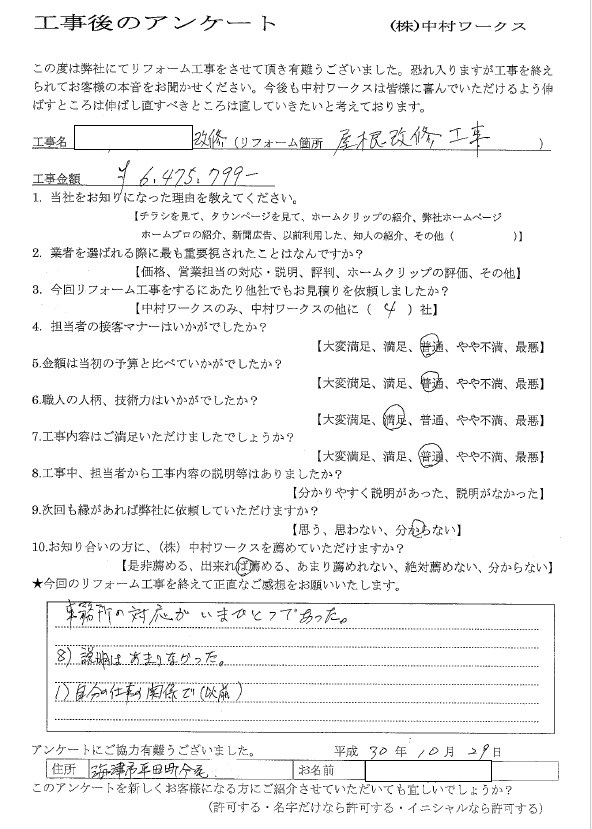 工事後のアンケート (株)中村ワークス
この度は弊社にてリフォーム工事をさせて頂き有難うございました。恐れ入りますが工事を終え
られてお客様の本音をお聞かせください。今後も中村ワークスは皆様に喜んでいただけるよう伸
ばすところは伸ばし直すべきところは直していきたいと考えております。
工事名 改修 (リフォーム箇所 屋根改修工事 )
工事金額 ¥6,475,799-
1. 当社をお知りになった理由を教えてください。
【チラシを見て、タウンページを見て、ホームクリップの紹介、弊社ホームページ
ホームプロの紹介、新聞広告、以前利用した、知人の紹介、その他( )】
2. 業者を選ばれる際に最も重要視されたことはなんですか?
【価格、営業担当の対応・説明、評判、ホームクリップの評価、その他】
3. 今回リフォーム工事をするにあたり他社でもお見積りを依頼しましたか?
【中村ワークスのみ、中村ワークスの他に( 4 )社】
4. 担当者の接客マナーはいかがでしたか?
【大変満足、満足、普通、やや不満、最悪】
5.金額は当初の予算と比べていかがでしたか?
【大変満足、満足、普通、やや不満、最悪】
6.職人の人柄、技術力はいかがでしたか?
【大変満足、満足、普通、やや不満、最悪】
7.工事内容はご満足いただけましたでしょうか?
【大変満足、満足、普通、やや不満、最悪】
8.工事中、担当者から工事内容の説明等はありましたか?
【分かりやすく説明があった、説明がなかった】
9.次回も縁があれば弊社に依頼していただけますか?
【思う、思わない、分からない】
10.お知り合いの方に、(株)中村ワークスを薦めていただけますか?
【是非薦める、出来れば薦める、あまり薦めれない、絶対薦めない、分からない】
★今回のリフォーム工事を終えて正直なご感想をお願いいたします。
事務所の対応がいまひとつであった。
8) 説明はあまりなかった。
1) 自分の仕事の関係で(以前)
アンケートにご協力有難うございました。 平成 30 年 10 月 29 日
住所 海津市平田町今尾 お名前
このアンケートを新しくお客様になる方にご紹介させていただいても宜しいでしょうか?
(許可する・名字だけなら許可する・イニシャルなら許可する)